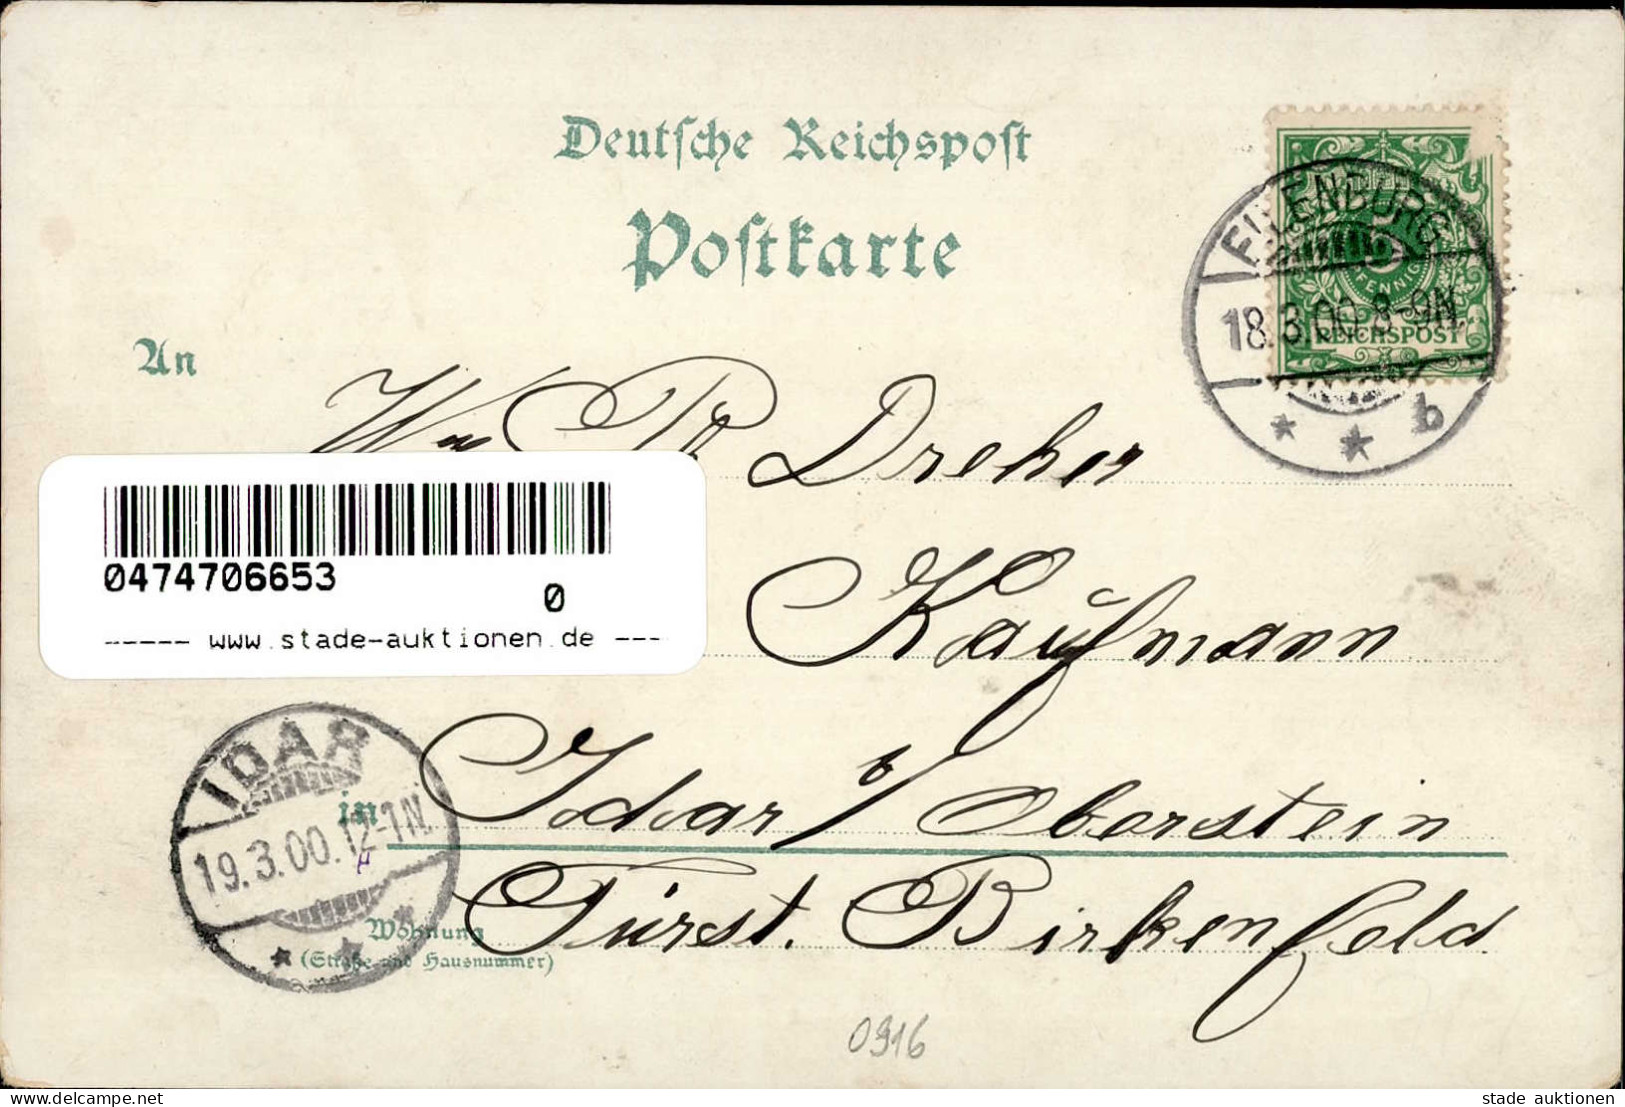 Deutsche Reichspost
Postkarte
An
PFENNIG
REICHSPOST
EILENBURG
18.3.00.8-9N.
* * b
Dreher
Kaufmann
0474706653
0
----- www.stade-auktionen.de ---
IDAR
19.3.00.12-1N.
* *
in Idar b/ Oberstein
Fürst. Birkenfeld
Wohnung
(Straße und Hausnummer)
0916
stade auktionen
stade auktionen